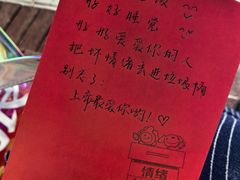 好好睡觉
好好爱爱你的人
把坏情绪丢进垃圾桶
别忘了:
上帝最爱你的!♡
情绪